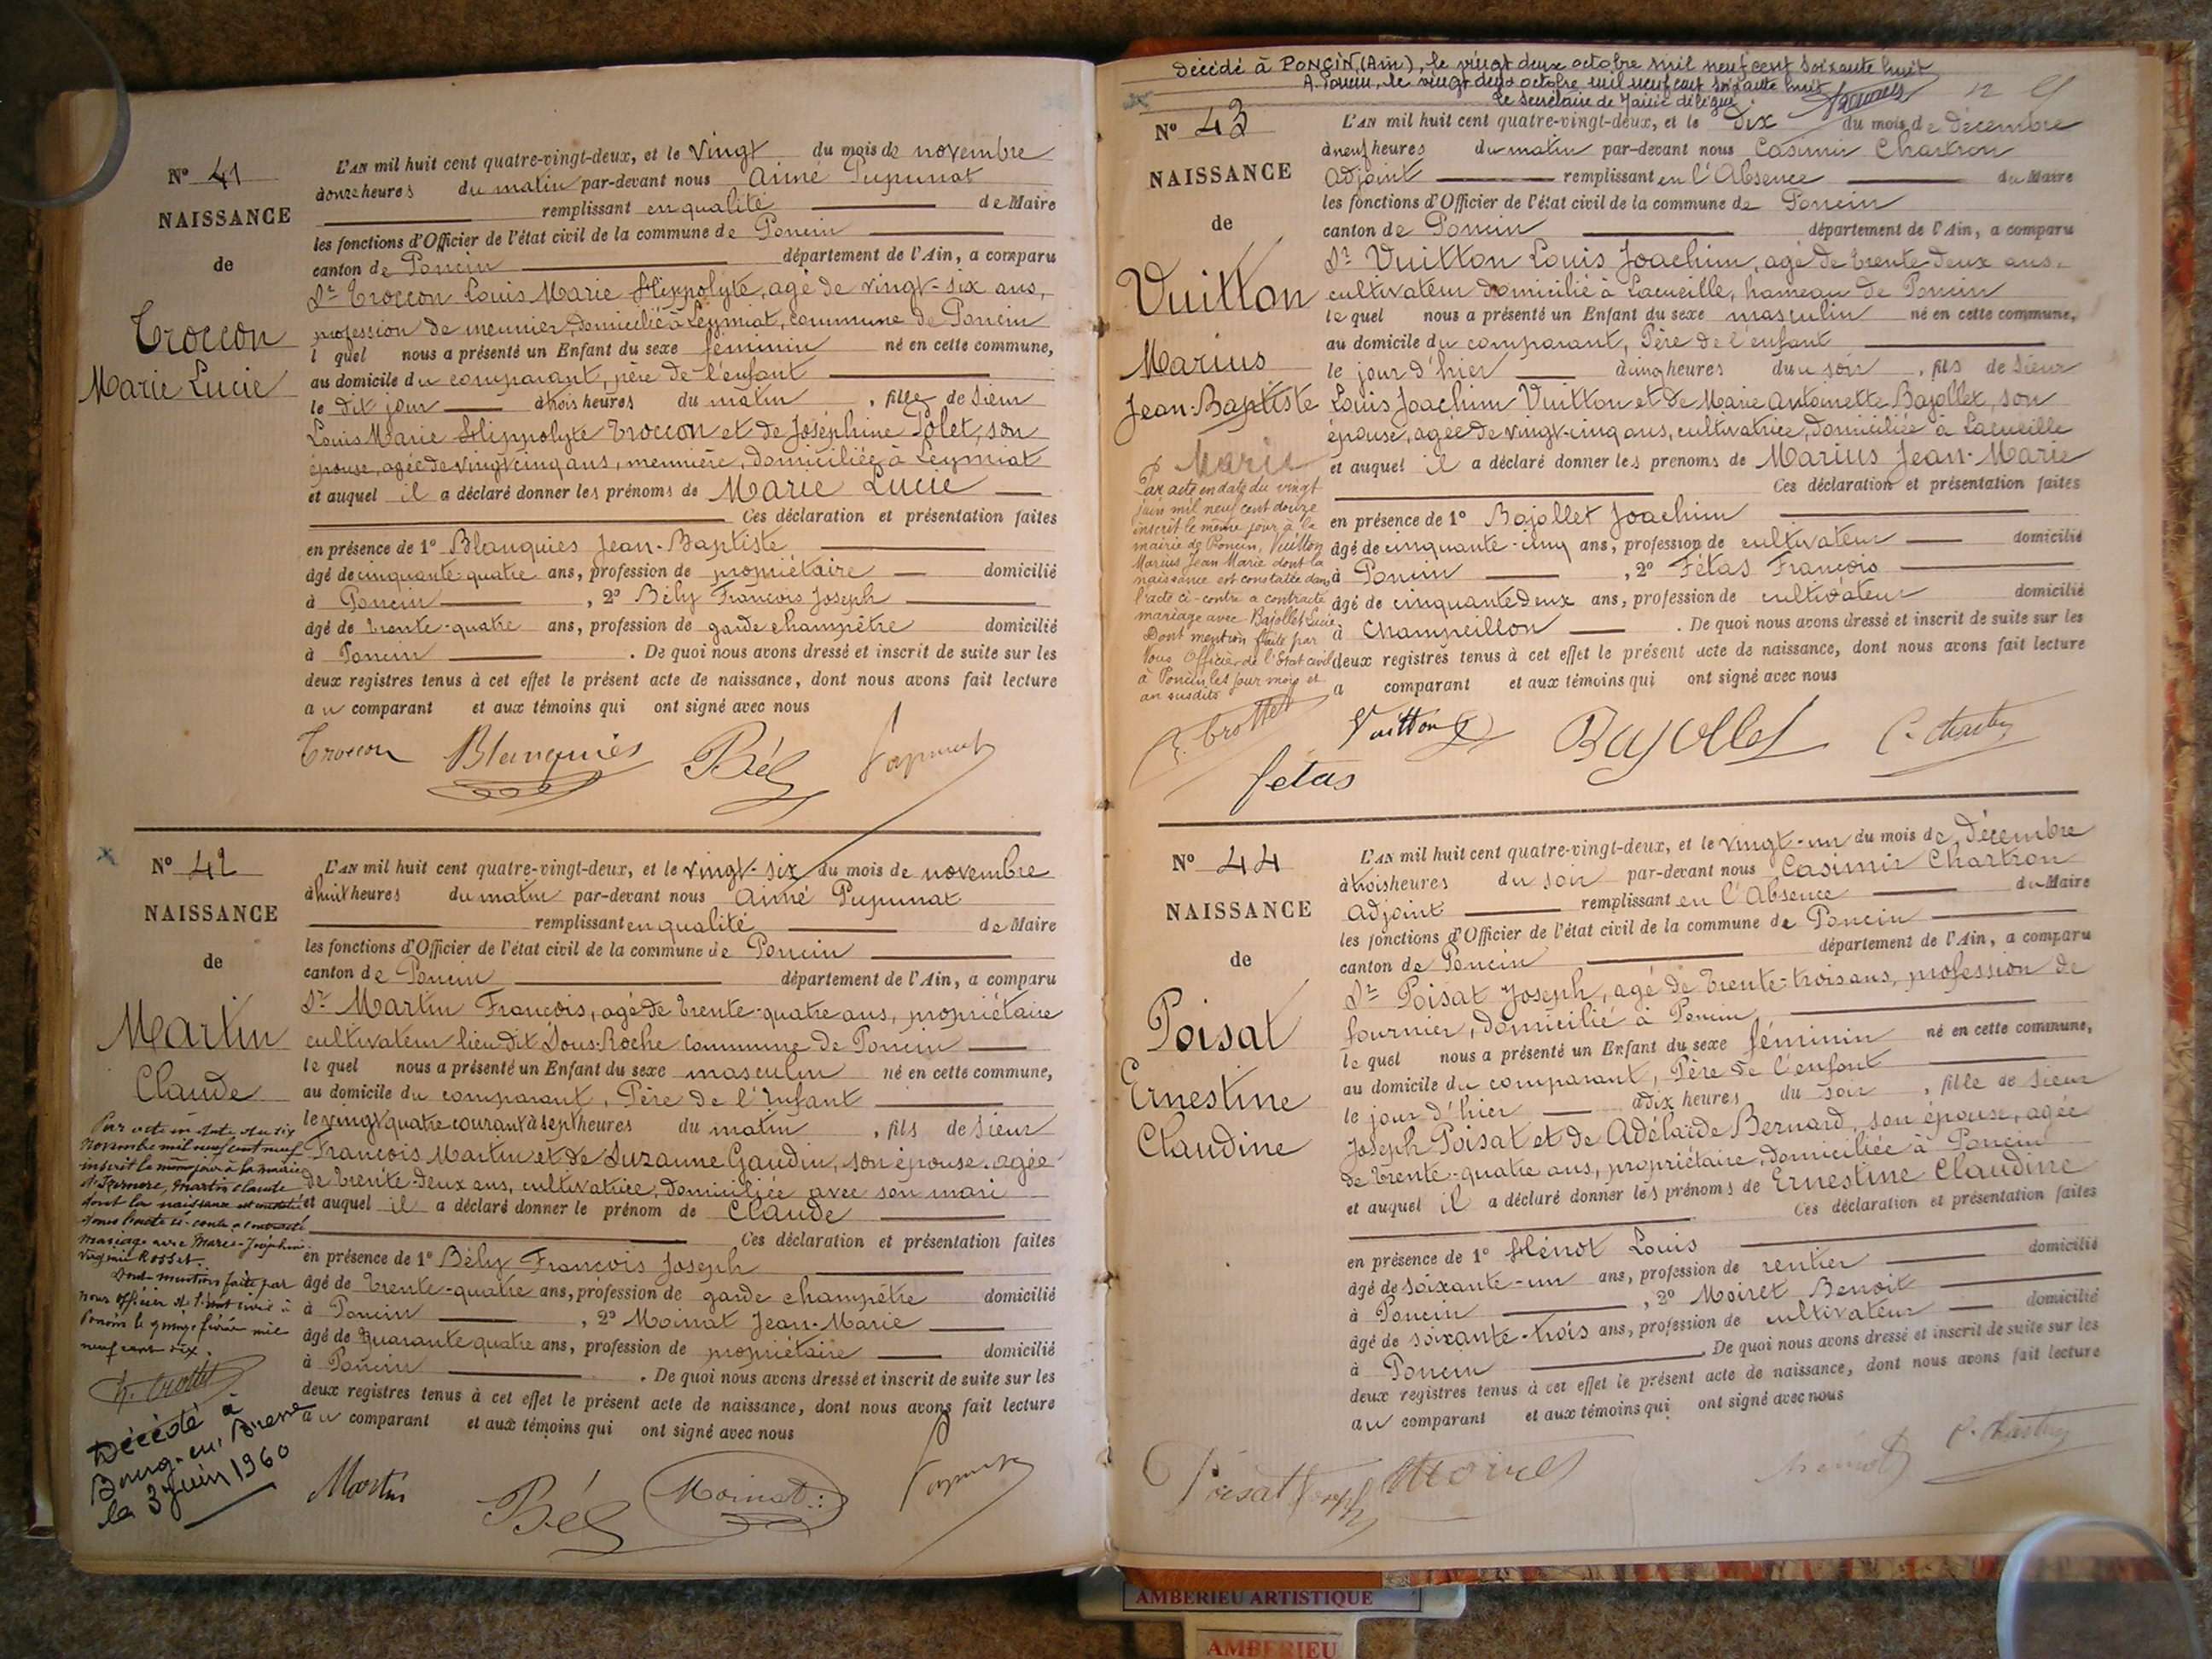 N° 41
NAISSANCE
de
Troccon
Marie Lucie
L'AN mil huit cent quatre-vingt-deux, et le vingt du mois de novembre
à onze heures du matin par-devant nous Aimé Pupunat
remplissant en qualité de Maire
les fonctions d'Officier de l'état civil de la commune de Poncin
canton de Poncin département de l'Ain, a comparu
Sr Troccon Louis Marie Hippolyte, agé de vingt-six ans,
profession de meunier, domicilié à Leymiat, commune de Poncin
l quel nous a présenté un Enfant du sexe féminin né en cette commune,
au domicile du comparant, père de l'enfant
le dit jour à trois heures du matin , fille de Sieur
Louis Marie Hippolyte Troccon et de Joséphine Polet, son
épouse, agée de vingt cinq ans, meunière, domiciliée à Leymiat
et auquel il a déclaré donner les prénoms de Marie Lucie
Ces déclaration et présentation faites
en présence de 1° Blanquies Jean-Baptiste
âgé de cinquante-quatre ans, profession de propriétaire domicilié
à Poncin , 2° Bély François Joseph
âgé de trente-quatre ans, profession de garde champêtre domicilié
à Poncin . De quoi nous avons dressé et inscrit de suite sur les
deux registres tenus à cet effet le présent acte de naissance, dont nous avons fait lecture
au comparant et aux témoins qui ont signé avec nous
Troccon Blanquies Bély Pupunat
N° 42
NAISSANCE
de
Martin
Claude
Par acte en date du six
novembre mil neuf cent neuf
inscrit le même jour à la mairie
de Izernore, Martin Claude
dont la naissance est constatée
dans l'acte ci-contre a contracté
mariage avec Marie-Joséphine
Virginie Rosset.
Dont mention faite par
nous officier de l'état civil à
Poncin le quinze février mil
neuf cent dix.
Décédé à
Bourg-en-Bresse
le 3 juin 1960
L'AN mil huit cent quatre-vingt-deux, et le vingt-six du mois de novembre
à huit heures du matin par-devant nous Aimé Pupunat
remplissant en qualité de Maire
les fonctions d'Officier de l'état civil de la commune de Poncin
canton de Poncin département de l'Ain, a comparu
Sr Martin François, agé de trente-quatre ans, propriétaire
cultivateur lieu dit Sous-Roche commune de Poncin
le quel nous a présenté un Enfant du sexe masculin né en cette commune,
au domicile du comparant, Père de l'Enfant
le vingt quatre courant à sept heures du matin , fils de Sieur
François Martin et de Suzanne Gaudin, son épouse agée
de trente-deux ans, cultivatrice, domiciliée avec son mari
et auquel il a déclaré donner le prénom de Claude
Ces déclaration et présentation faites
en présence de 1° Bély François Joseph
âgé de trente-quatre ans, profession de garde champêtre domicilié
à Poncin , 2° Moinat Jean-Marie
âgé de quarante quatre ans, profession de propriétaire domicilié
à Poncin . De quoi nous avons dressé et inscrit de suite sur les
deux registres tenus à cet effet le présent acte de naissance, dont nous avons fait lecture
au comparant et aux témoins qui ont signé avec nous
Martin Bély Moinat Pupunat
Décédé à PONCIN (Ain), le vingt deux octobre mil neuf cent soixante huit
A Poncin, le vingt deux octobre mil neuf cent soixante huit
Le Secrétaire de Mairie délégué
N° 43
NAISSANCE
de
Vuitton
Marius
Jean-Baptiste
Marie
Par acte en date du vingt
juin mil neuf cent douze
inscrit le même jour à la
mairie de Poncin, Vuitton
Marius Jean Marie dont la
naissance est constatée dans
l'acte ci-contre a contracté
mariage avec Bajollet Lucie
Dont mention faite par
Nous Officier de l'Etat civil
à Poncin les jour mois et
an susdits
L'AN mil huit cent quatre-vingt-deux, et le dix du mois de décembre
à neuf heures du matin par-devant nous Casimir Chartron
adjoint remplissant en l'Absence du Maire
les fonctions d'Officier de l'état civil de la commune de Poncin
canton de Poncin département de l'Ain, a comparu
Sr Vuitton Louis Joachim, agé de trente-deux ans,
cultivateur domicilié à Lacueille, hameau de Poncin
le quel nous a présenté un Enfant du sexe masculin né en cette commune,
au domicile du comparant, Père de l'enfant
le jour d'hier à cinq heures du soir , fils de Sieur
Louis Joachim Vuitton et de Marie Antoinette Bajollet, son
épouse, agée de vingt-cinq ans, cultivatrice, domiciliée à Lacueille
et auquel il a déclaré donner les prénoms de Marius Jean-Marie
Ces déclaration et présentation faites
en présence de 1° Bajollet Joachim
âgé de cinquante-cinq ans, profession de cultivateur domicilié
à Poncin , 2° Fétas François
âgé de cinquante deux ans, profession de cultivateur domicilié
à Champeillon . De quoi nous avons dressé et inscrit de suite sur les
deux registres tenus à cet effet le présent acte de naissance, dont nous avons fait lecture
a comparant et aux témoins qui ont signé avec nous
E. Trottet Vuitton Bajollet C. Chartron
fétas
N° 44
NAISSANCE
de
Poisat
Ernestine
Claudine
L'AN mil huit cent quatre-vingt-deux, et le vingt-un du mois de Décembre
à trois heures du soir par-devant nous Casimir Chartron
adjoint remplissant en l'Absence du Maire
les fonctions d'Officier de l'état civil de la commune de Poncin
canton de Poncin département de l'Ain, a comparu
Sr Poisat Joseph, agé de trente-trois ans, profession de
fournier, domicilié à Poncin,
le quel nous a présenté un Enfant du sexe féminin né en cette commune,
au domicile du comparant, Père de l'enfant
le jour d'hier à dix heures du soir , fille de Sieur
Joseph Poisat et de Adélaïde Bernard, son épouse, agée
de trente-quatre ans, propriétaire, domiciliée à Poncin
et auquel il a déclaré donner les prénoms de Ernestine Claudine
Ces déclaration et présentation faites
en présence de 1° Hénot Louis
âgé de soixante-un ans, profession de rentier domicilié
à Poncin , 2° Moiret Benoit
âgé de soixante-trois ans, profession de cultivateur domicilié
à Poncin . De quoi nous avons dressé et inscrit de suite sur les
deux registres tenus à cet effet le présent acte de naissance, dont nous avons fait lecture
au comparant et aux témoins qui ont signé avec nous
Poisat Joseph Moiret hénot C. Chartron
AMBERIEU ARTISTIQUE
AMBERIEU